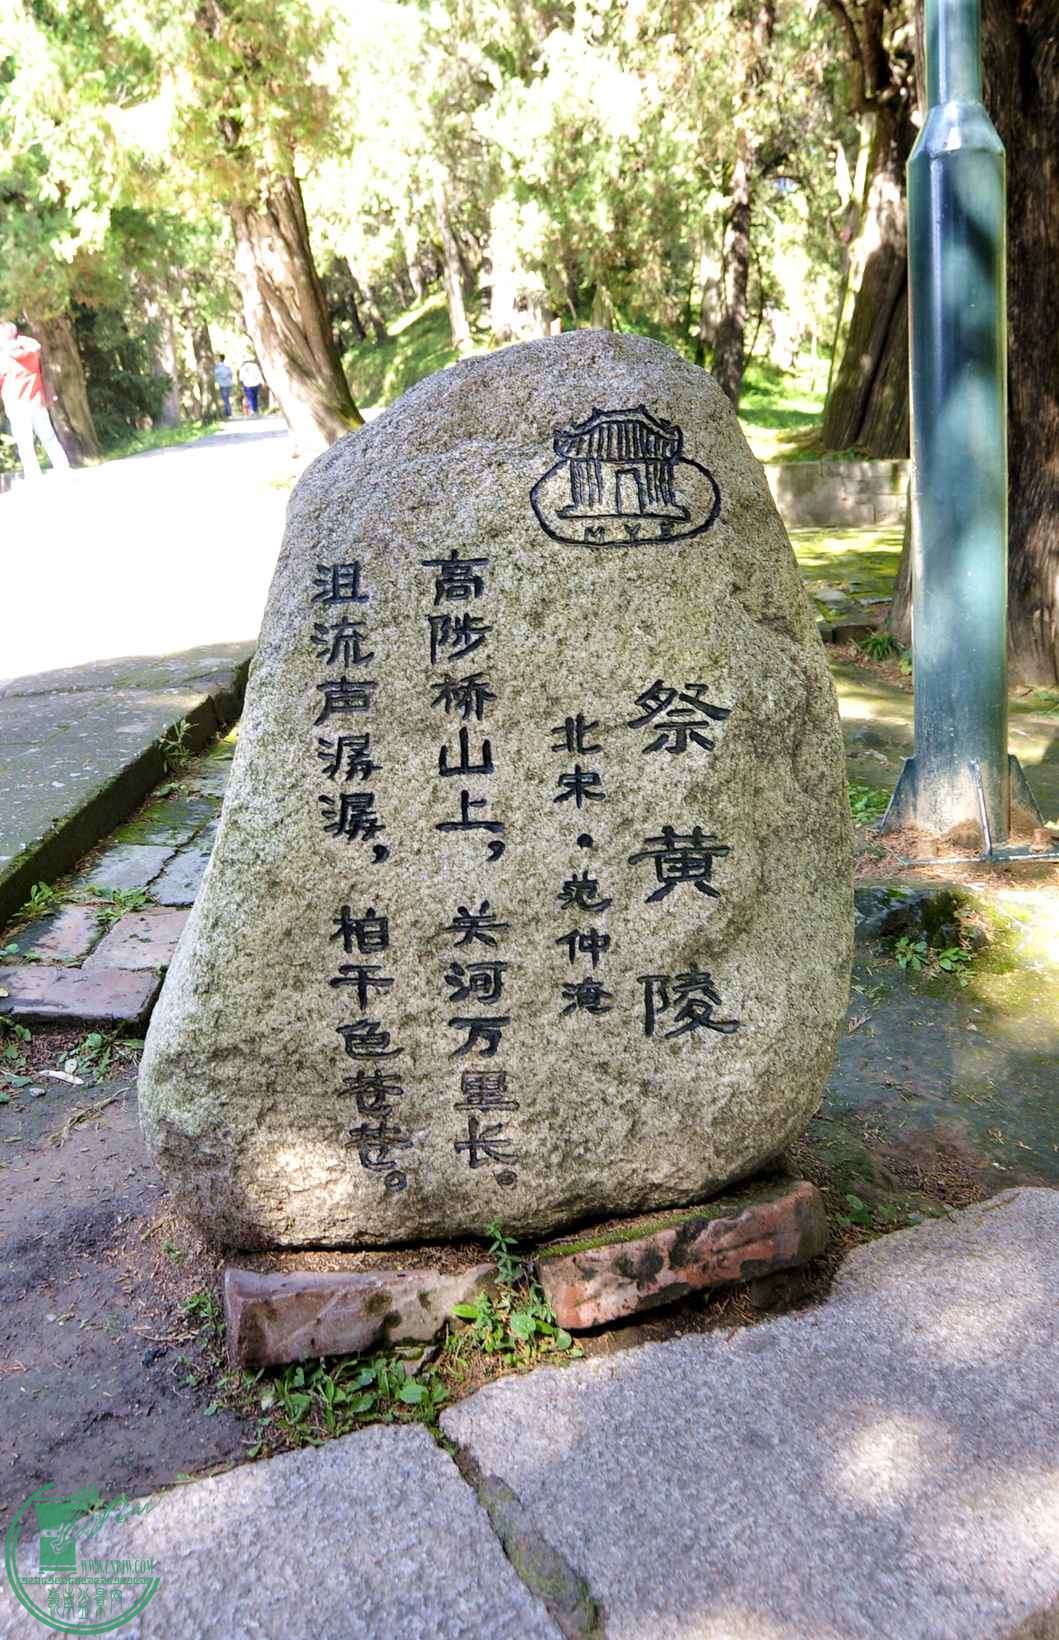 祭黄陵
北宋·范仲淹
高陟桥山上，关河万里长。
沮流声潺潺，柏干色苍苍。
WWW.CNBJW.COM